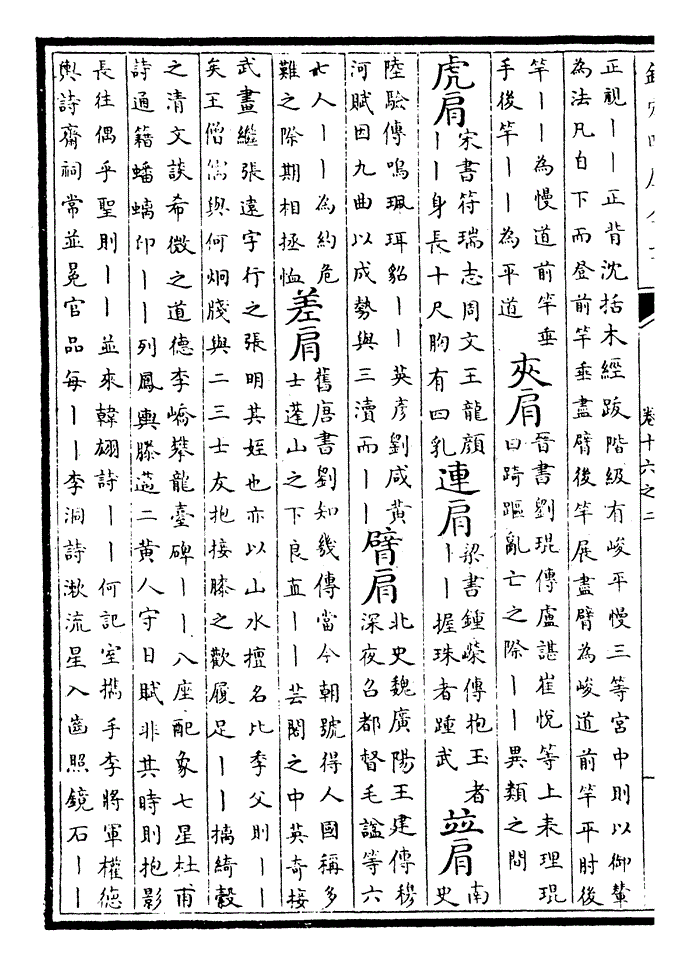 欽定四庫全書
卷十六之二
正視——正背沈括木經䟦階級有峻平慢三等宮中則以御輦
為法凡自下而登前竿垂盡臂後竿展盡臂為峻道前竿平肘後
竿——為慢道前竿垂
手後竿——為平道
夾肩
晉書劉琨傳盧諶崔悅等上表理琨
曰踦𨄅亂亡之際——異類之間
虎肩
宋書符瑞志周文王龍顏
——身長十尺胸有四乳
連肩
梁書鍾嶸傳抱玉者
——握珠者踵武
並肩
南
史
陸驗傳鳴珮珥貂——英彥劉咸黃
河賦因九曲以成勢與三瀆而——
臂肩
北史魏廣陽王建傳穆
深夜召都督毛諡等六
七人——為約危
難之際期相拯恤
差肩
舊唐書劉知幾傳當今朝號得人國稱多
士蓬山之下良直——芸閣之中英奇接
武畫繼張遠字行之張明其姪也亦以山水擅名比季父則——
矣王僧儒與何炯牋與二三士友抱接膝之歡履足——摛綺縠
之清文談希微之道德李嶠攀龍臺碑——八座配象七星杜甫
詩通籍蟠螭印——列鳳輿滕邁二黃人守日賦非其時則抱影
長往偶乎聖則——並來韓翃詩——何記室攜手李將軍權德
輿詩齋祠常並冕官品每——李洞詩漱流星入齒照鏡石——